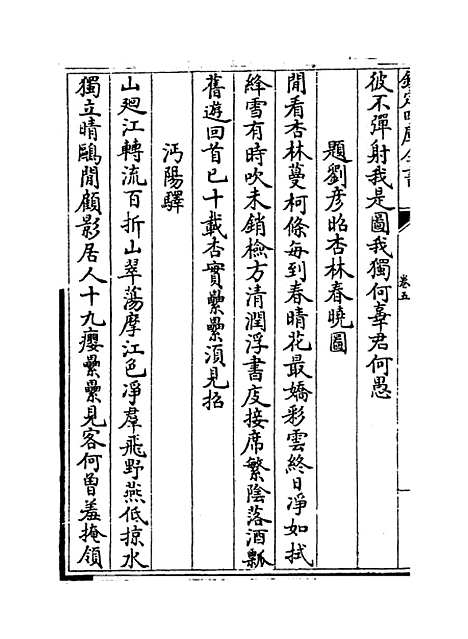 欽定四庫全書
卷五
彼不彈射我是圖我獨何辜君何愚
題劉彦昭杏林春曉圖
閒看杏林蔓柯條每到春晴花最嬌彩雲終日淨如拭
絳雪有時吹未銷檢方清潤浮書庋接席繁陰落酒瓢
舊遊回首已十載杏實纍纍須見招
沔陽驛
山廻江轉流百折山翠蕩摩江色凈羣飛野燕低掠水
獨立晴鷗閒顧影居人十九癭纍纍見客何曽羞掩領